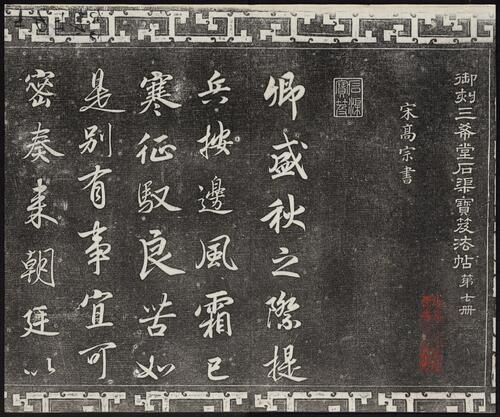 御刻三希堂石渠寶笈法帖 第七册
宋高宗書
石渠寶笈
卿盛秋之際提
兵按邊風霜已
寒征馭良苦如
是別有事宜可
密奏来朝廷以